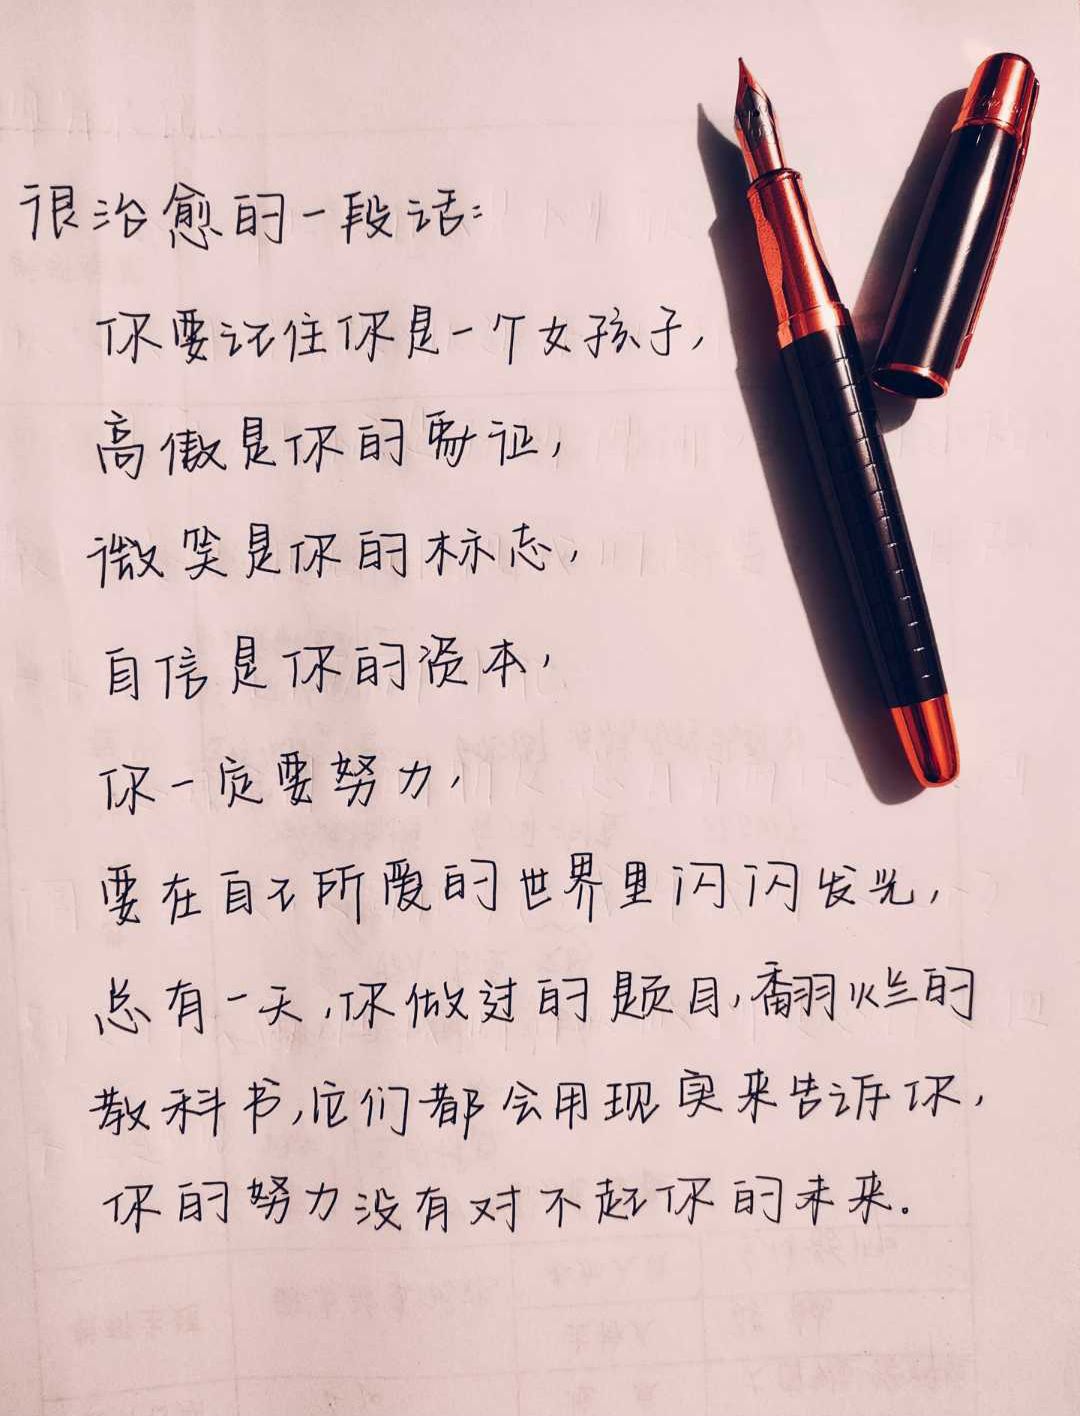 很治愈的一段话:
你要记住你是一个女孩子,
高傲是你的 证,
微笑是你的标志,
自信是你的资本,
你一定要努力,
要在自己所爱的世界里闪闪发光,
总有一天,你做过的题目,翻烂的
教科书,它们都会用现实来告诉你,
你的努力没有对不起你的未来.